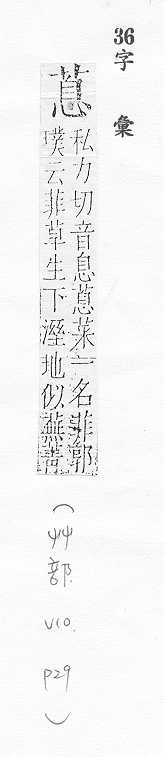 36字 彙
蒠 私力切音息蒠菜一名菲郭
璞云菲草生下溼地似蕪菁
（艸部 V10. P29）